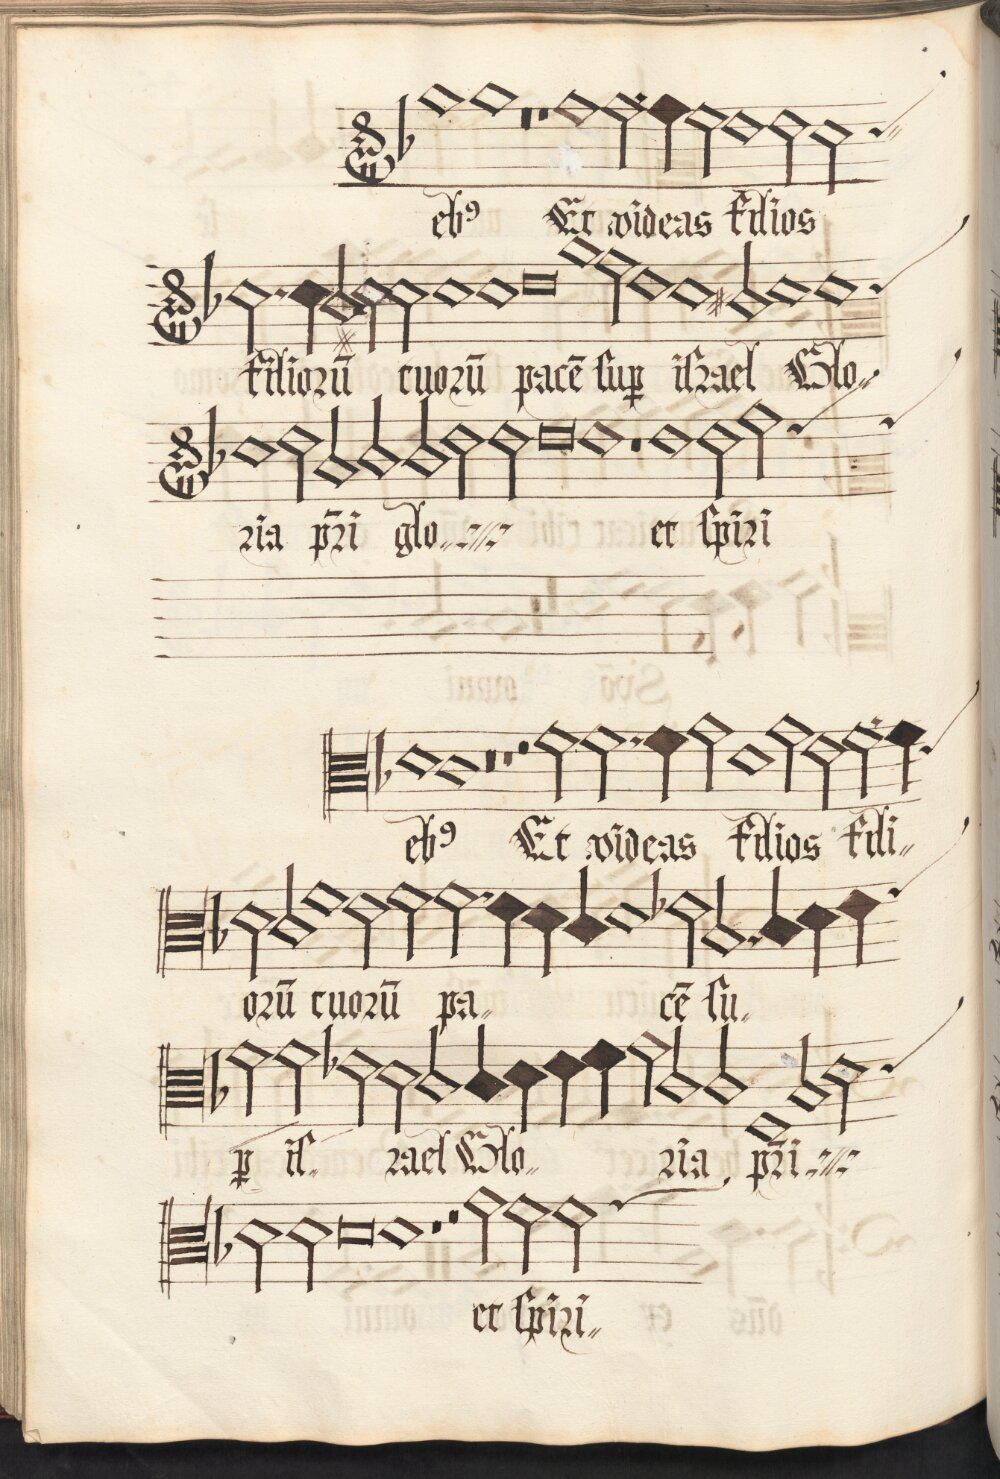 ebꝰ Et videas filios
filiorū tuorū pacē sup israel Glo
ria pr̄i glo et spiri
ebꝰ Et videas filios fili
orū tuorū pa cē su
ꝑ is rael Glo ria pr̄i
et spiri